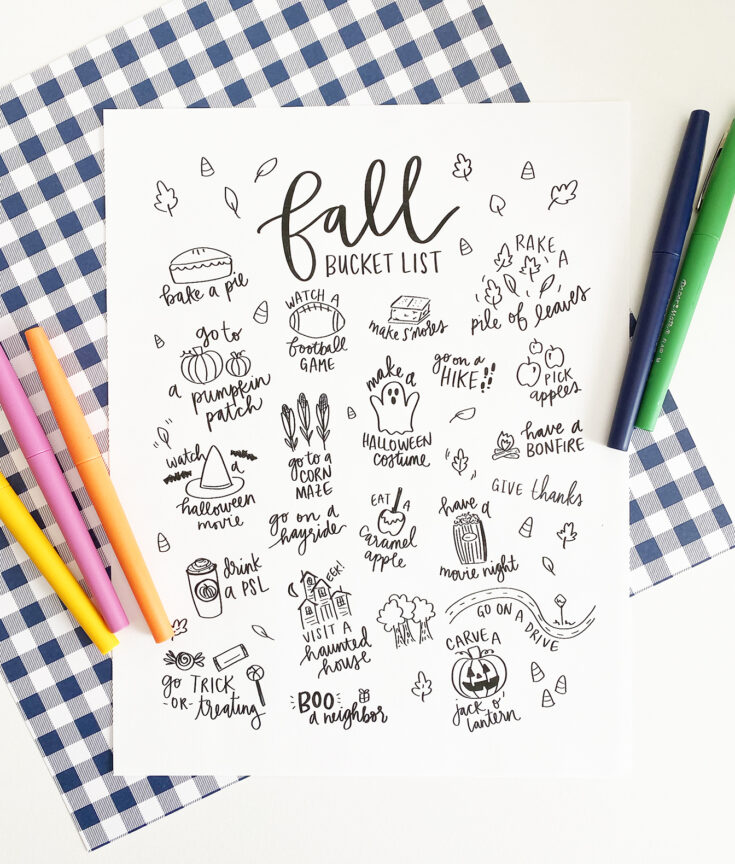 fall
BUCKET LIST
bake a pie
WATCH A
football
GAME
make s'mores
RAKE
A
pile of leaves
go to
a pumpkin
patch
go to a
CORN
MAZE
make a
HALLOWEEN
costume
go on a
HIKE!!
PICK
apples
watch
a
halloween
movie
have a
BONFIRE
GIVE thanks
go on a
hayride
EAT
A
caramel
apple
have a
movie night
drink
A PSL
EEK!
VISIT A
haunted
house
GO ON A DRIVE
CARVE A
jack o'
lantern
go TRICK
-OR- treating
BOO
a neighbor